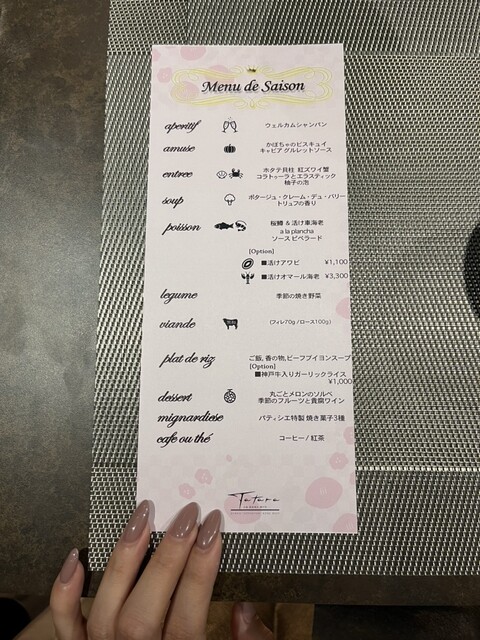 Menu de Saison
aperitif ウェルカムシャンパン
amuse かぼちゃのビスキュイ
キャビア グルレットソース
entree ホタテ貝柱 紅ズワイ蟹
コラトゥーラとエラスティック
柚子の泡
soup ポタージュ・クレーム・デュ・バリー
トリュフの香り
poisson 桜鱒 & 活け車海老
a la plancha
ソース ピペラード
[Option]
■活けアワビ ¥1,100
■活けオマール海老 ¥3,300
legume 季節の焼き野菜
viande (フィレ70g /ロース100g)
plat de riz ご飯, 香の物, ビーフブイヨンスープ
[Option]
■神戸牛入りガーリックライス
¥1,000
dessert 丸ごとメロンのソルベ
季節のフルーツと貴腐ワイン
mignardiese パティシエ特製 焼き菓子3種
cafe ou thé コーヒー / 紅茶
Tatara